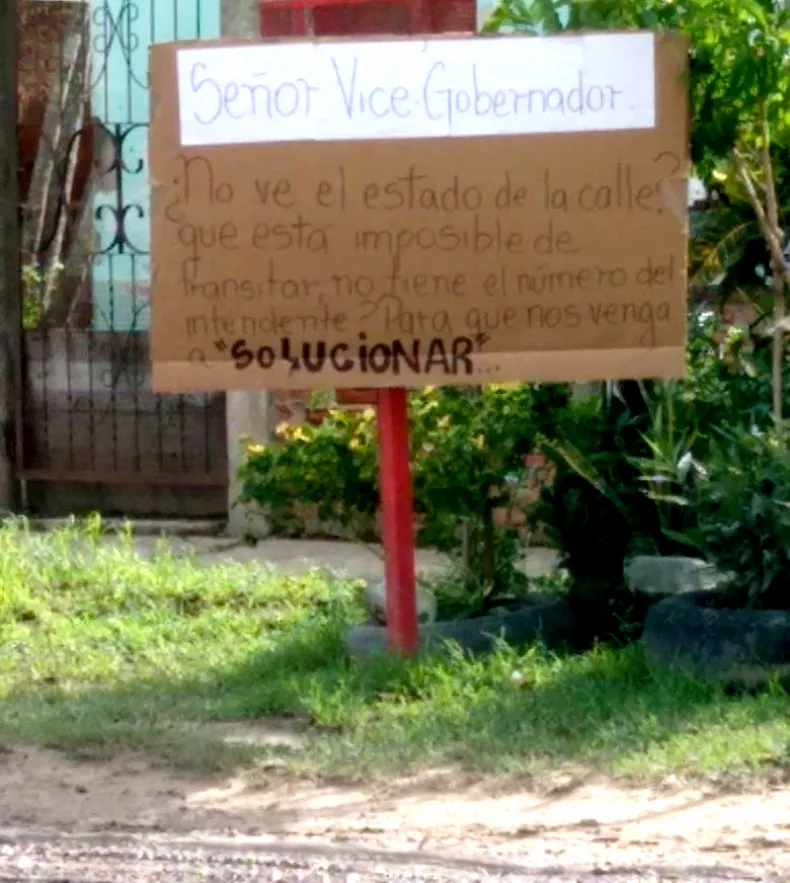 Señor Vice-Gobernador.
¿No ve el estado de la calle?
que está imposible de
transitar, no tiene el número del
intendente? Para que nos venga
a "SOLUCIONAR"...